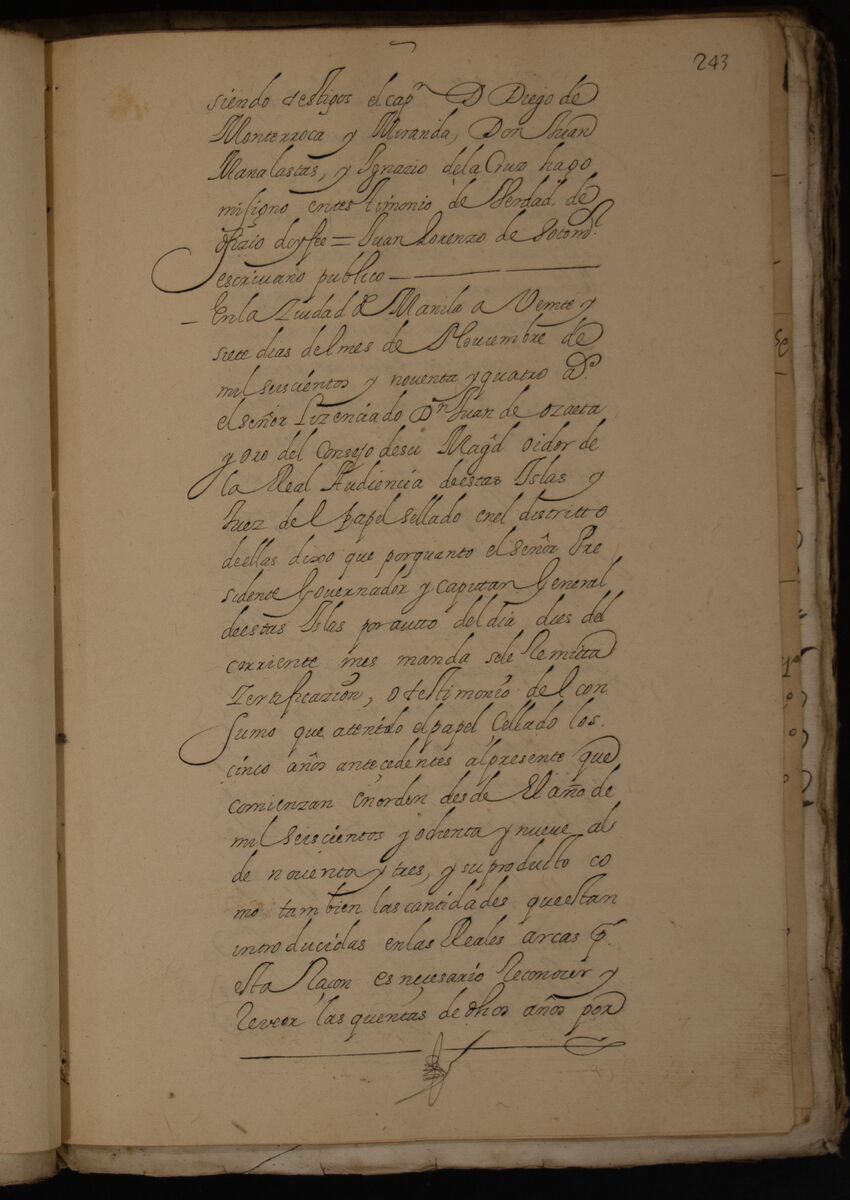 243
siendo testigos el capn D Diego de
Monterroca y Miranda, Don Juan
Manalastas, y Ygnazio dela Cruz hago
mi signo entestimonio de Verdad de
ofizio doy fee = Juan Lorenzo de Sotomor
escriuano publico
En la Ziudad de Manila a Veinte y
siete dias del mes de Nouiembre de
mil seiscientos y nouenta y quatro as
el señor Lizenciado Dn Juan de ozaeta
y oro del Consejo desu Magd oidor de
la Real Audiencia deestas Yslas y
Juez del papel sellado enel distritto
deellas dixo que porquanto el señor Pre
sidente Gouernador y capitan General
deestas Yslas por autto del dia dies del
corriente mes manda sele Remitta
Zertificazion, o testimonio del con
sumo que atenido el papel Cellado los
cinco años antecedentes al presente que
comienzan en orden desde El año de
mil seiscientos y ochenta y nueue al
de nouenta y tres, y su produsto co
mo tambien las cantidades queestan
introducidas enlas Reales arcas pr
esta Racon es neçesario Reconocer y
Reveer las quentas de dhos años por